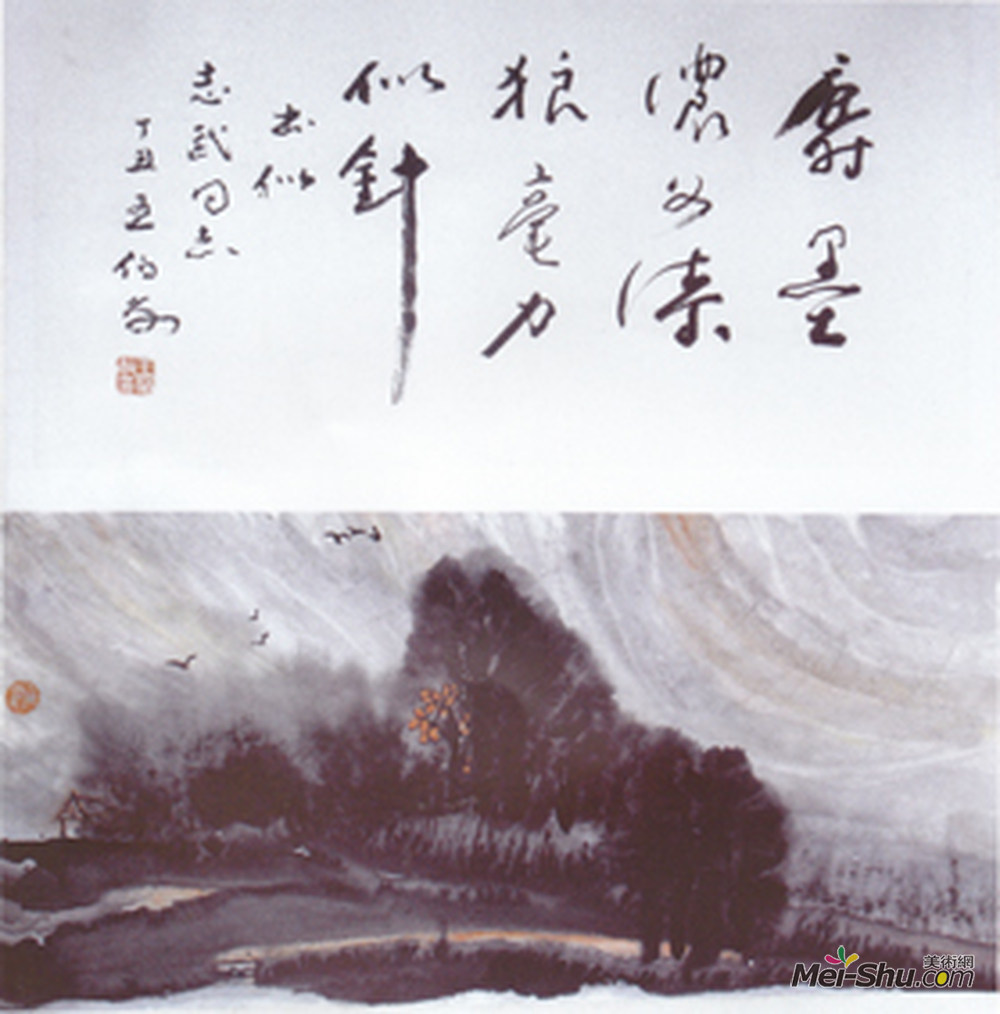 麝墨
濃如漆
狼毫力
似針
似
志武同志
丁丑王伯敏
美術網
Mei-Shu.com